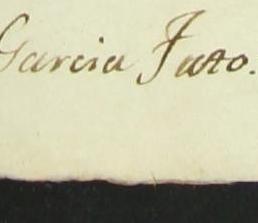 Garcia Jato.